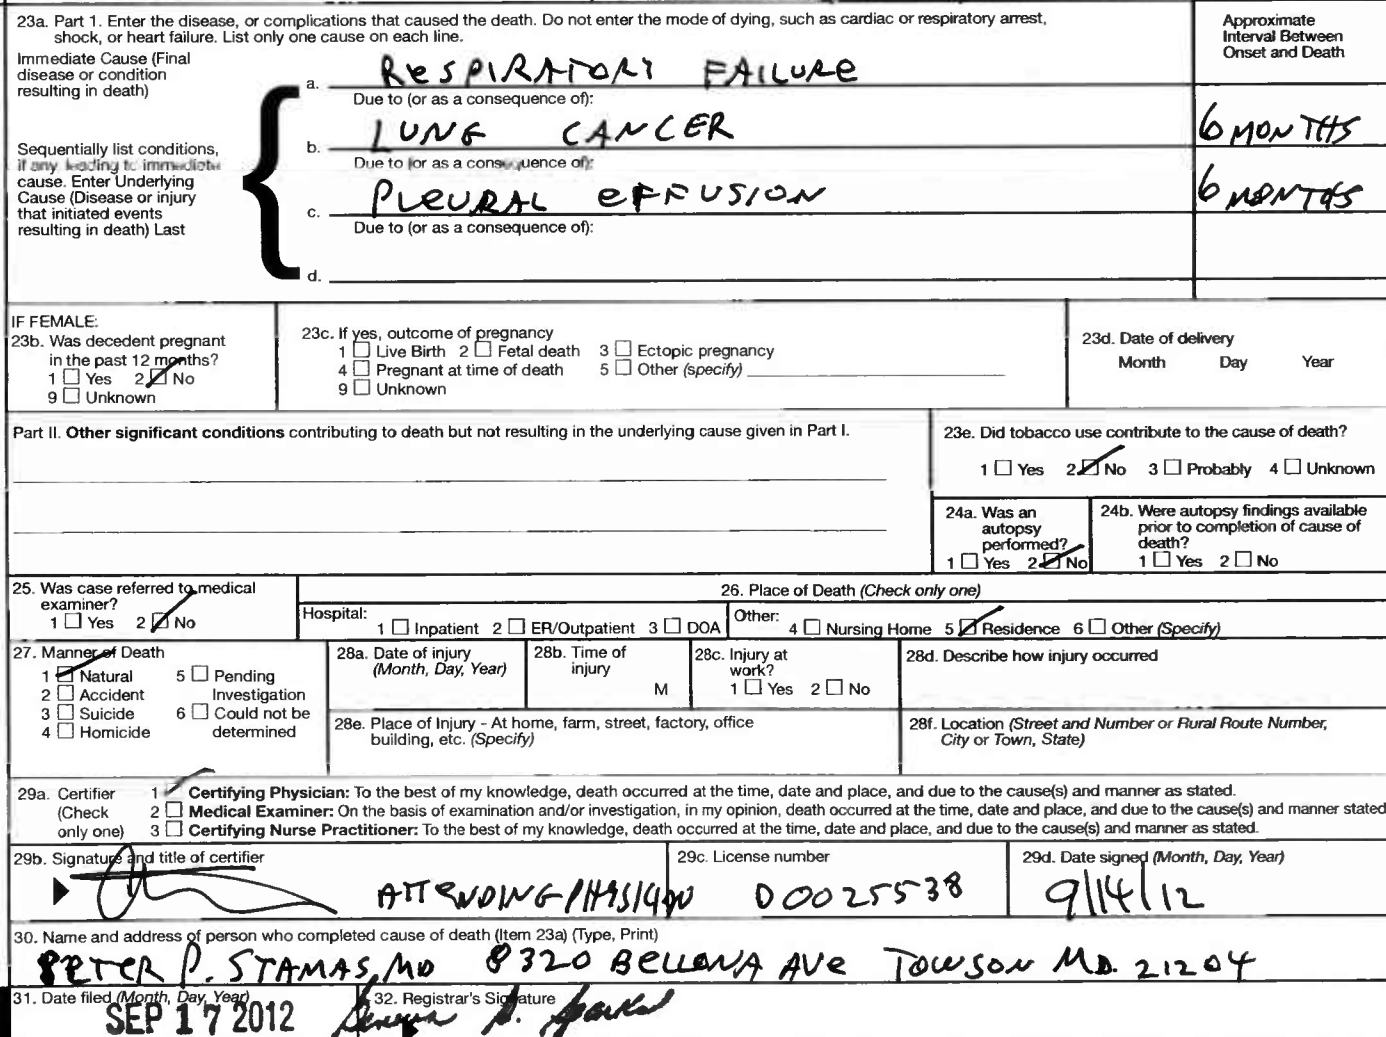 23a. Part 1. Enter the disease, or complications that caused the death. Do not enter the mode of dying, such as cardiac or respiratory arrest,
shock, or heart failure. List only one cause on each line.
Approximate
Interval Between
Onset and Death
Immediate Cause (Final
disease or condition
resulting in death)
a. RESPIRATORY FAILURE
Due to (or as a consequence of):
b. LUNG CANCER 6 MONTHS
Sequentially list conditions,
if any leading to immediate
cause. Enter Underlying
Cause (Disease or injury
that initiated events
resulting in death) Last
Due to (or as a consequence of):
c. PLEURAL EFFUSION 6 MONTHS
Due to (or as a consequence of):
d.
IF FEMALE:
23b. Was decedent pregnant
in the past 12 months?
1 Yes 2 No
9 Unknown
23c. If yes, outcome of pregnancy
1 Live Birth 2 Fetal death 3 Ectopic pregnancy
4 Pregnant at time of death 5 Other (specify)
9 Unknown
23d. Date of delivery
Month Day Year
Part II. Other significant conditions contributing to death but not resulting in the underlying cause given in Part I.
23e. Did tobacco use contribute to the cause of death?
1 Yes 2 No 3 Probably 4 Unknown
24a. Was an
autopsy
performed?
1 Yes 2 No
24b. Were autopsy findings available
prior to completion of cause of
death?
1 Yes 2 No
25. Was case referred to medical
examiner?
1 Yes 2 No
26. Place of Death (Check only one)
Hospital: 1 Inpatient 2 ER/Outpatient 3 DOA
Other: 4 Nursing Home 5 Residence 6 Other (Specify)
27. Manner of Death
1 Natural 5 Pending
2 Accident Investigation
3 Suicide 6 Could not be
4 Homicide determined
28a. Date of injury
(Month, Day, Year)
28b. Time of
injury
M
28c. Injury at
work?
1 Yes 2 No
28d. Describe how injury occurred
28e. Place of Injury - At home, farm, street, factory, office
building, etc. (Specify)
28f. Location (Street and Number or Rural Route Number,
City or Town, State)
29a. Certifier
(Check
only one)
1 Certifying Physician: To the best of my knowledge, death occurred at the time, date and place, and due to the cause(s) and manner as stated.
2 Medical Examiner: On the basis of examination and/or investigation, in my opinion, death occurred at the time, date and place, and due to the cause(s) and manner stated
3 Certifying Nurse Practitioner: To the best of my knowledge, death occurred at the time, date and place, and due to the cause(s) and manner as stated.
29b. Signature and title of certifier
ATTENDING PHYSICIAN
29c. License number
D0025538
29d. Date signed (Month, Day, Year)
9/14/12
30. Name and address of person who completed cause of death (Item 23a) (Type, Print)
PETER P. STAMAS, MD 8320 BELLONA AVE TOWSON MD. 21204
31. Date filed (Month, Day, Year)
SEP 17 2012
32. Registrar's Signature